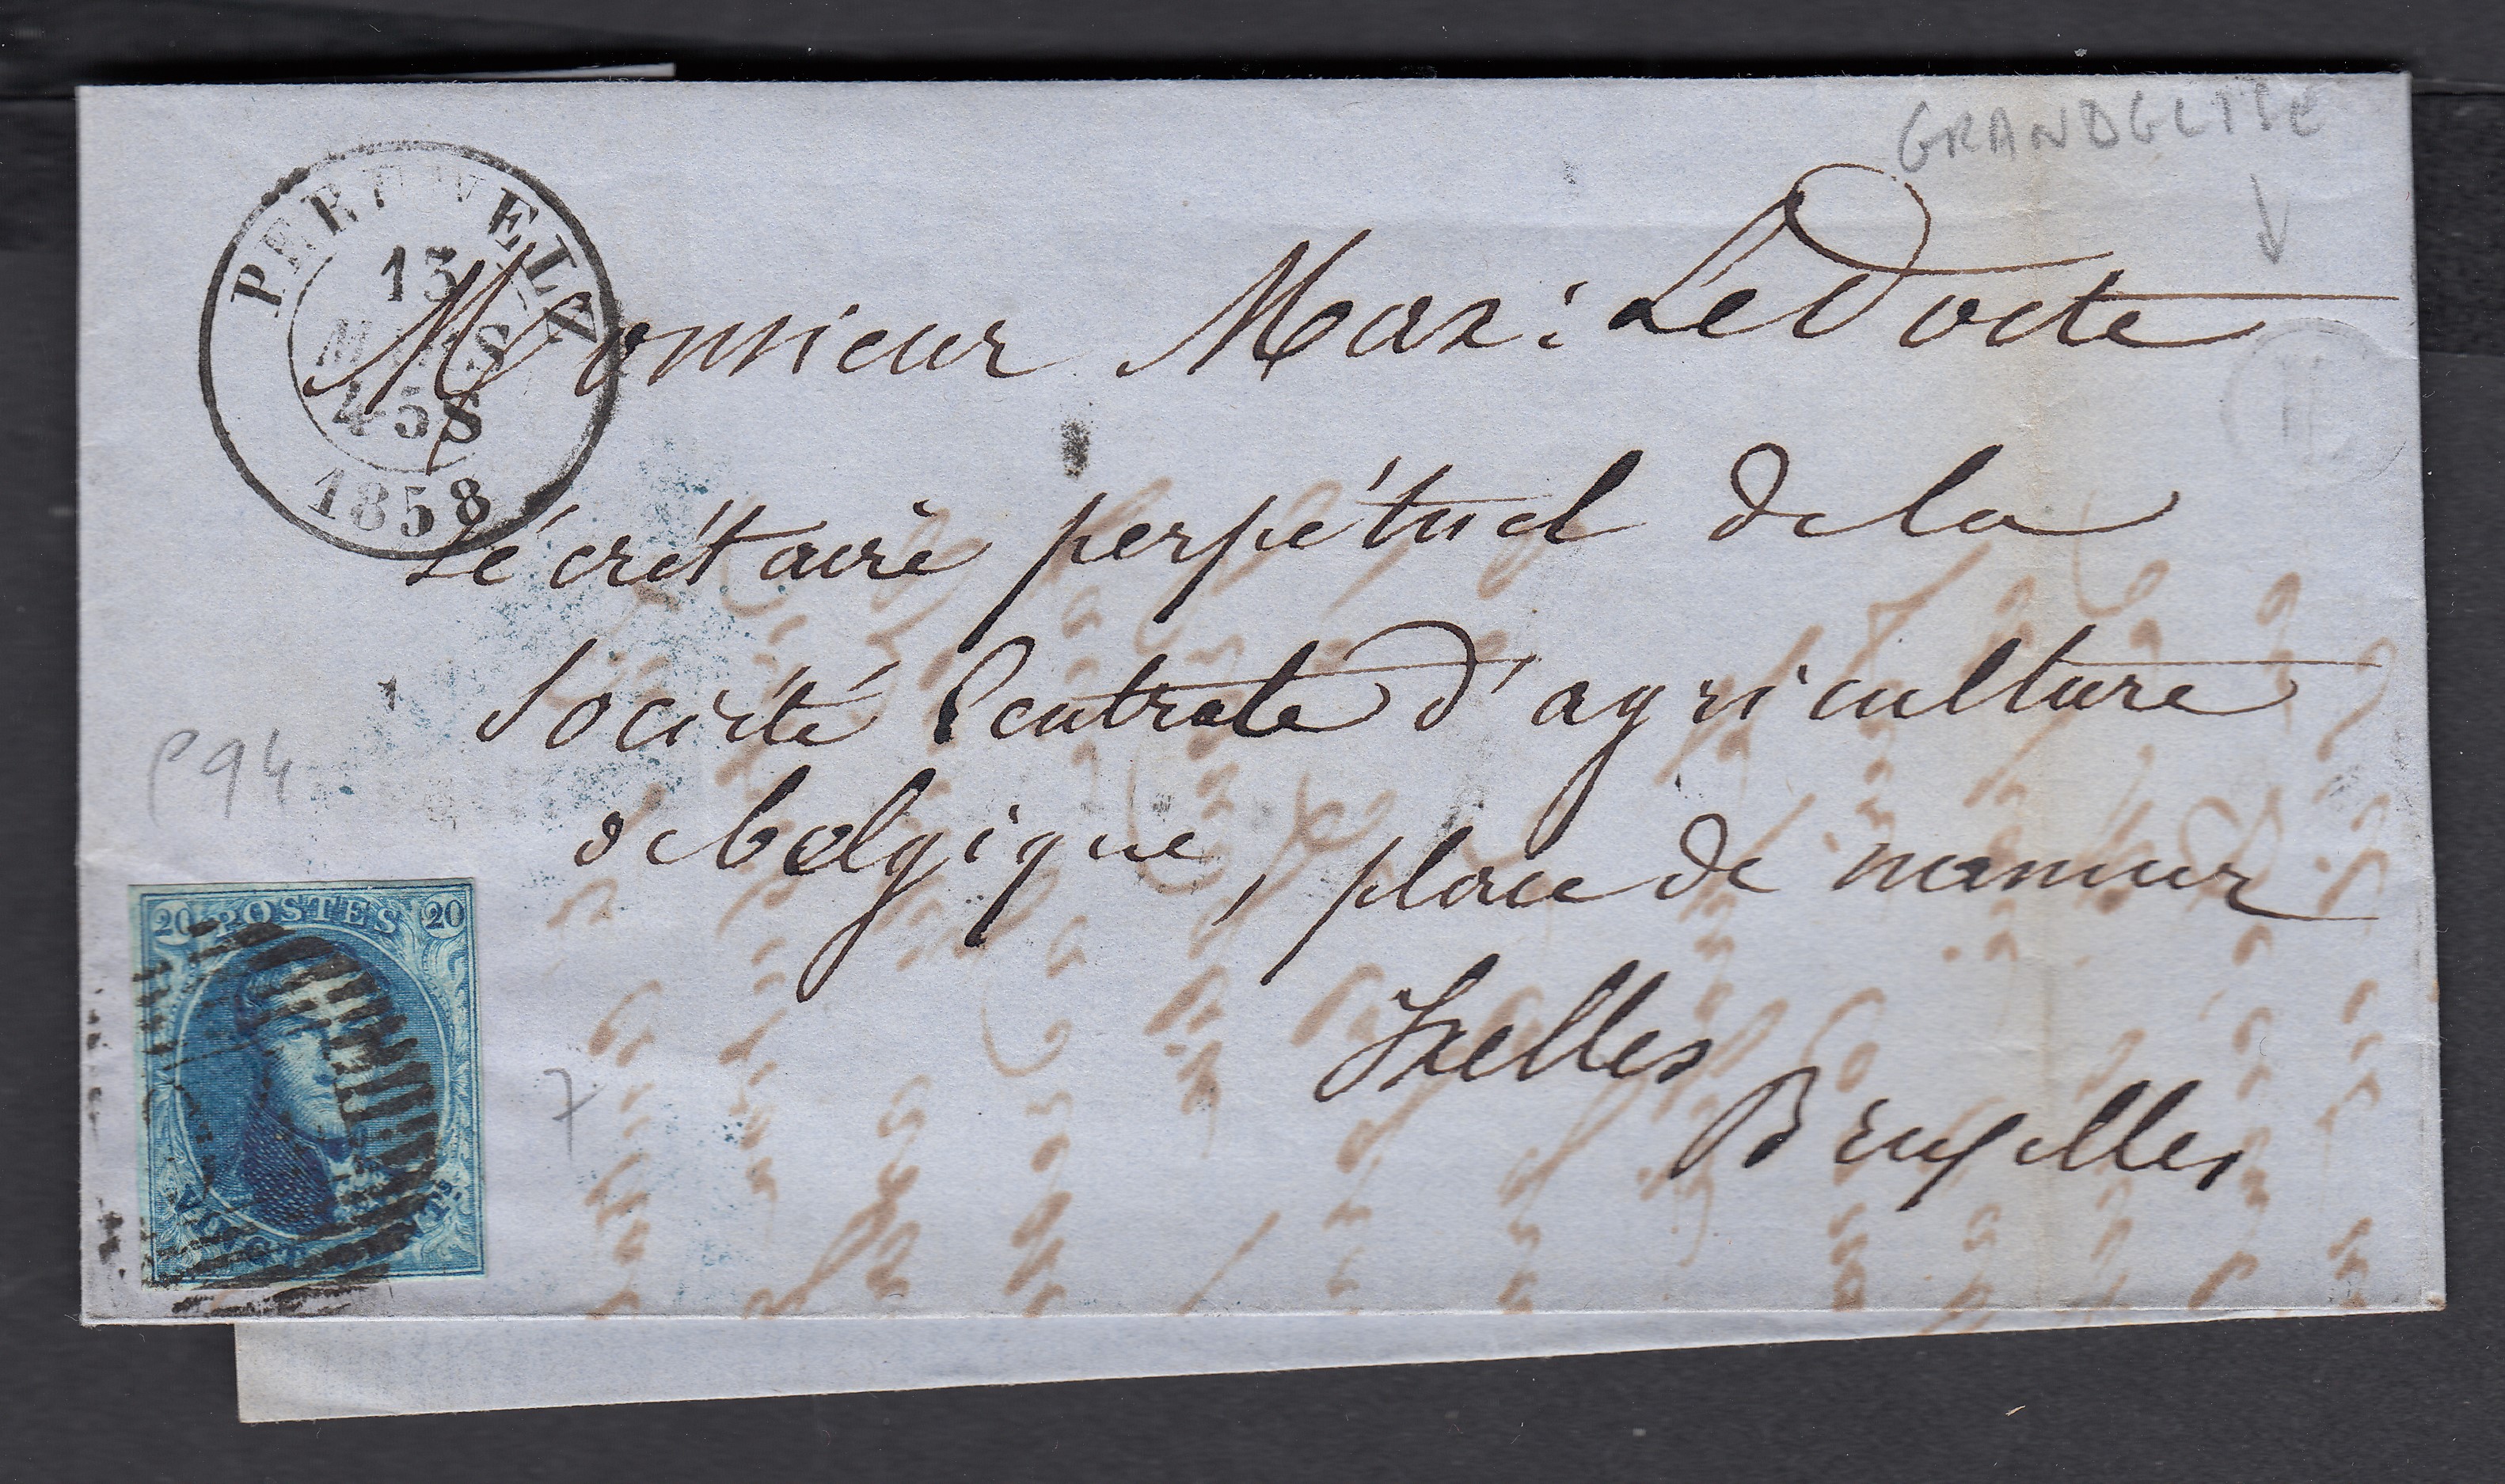 GRANDGLISE
PERUWELZ
13
MARS
4-5S
1858
Monsieur Max: Le Docte
Sécrétaire perpétuel de la
Société Centrale d'agriculture
de belgique, place de namur
Ixelles
Bruxelles
P94
7
20 POSTES 20